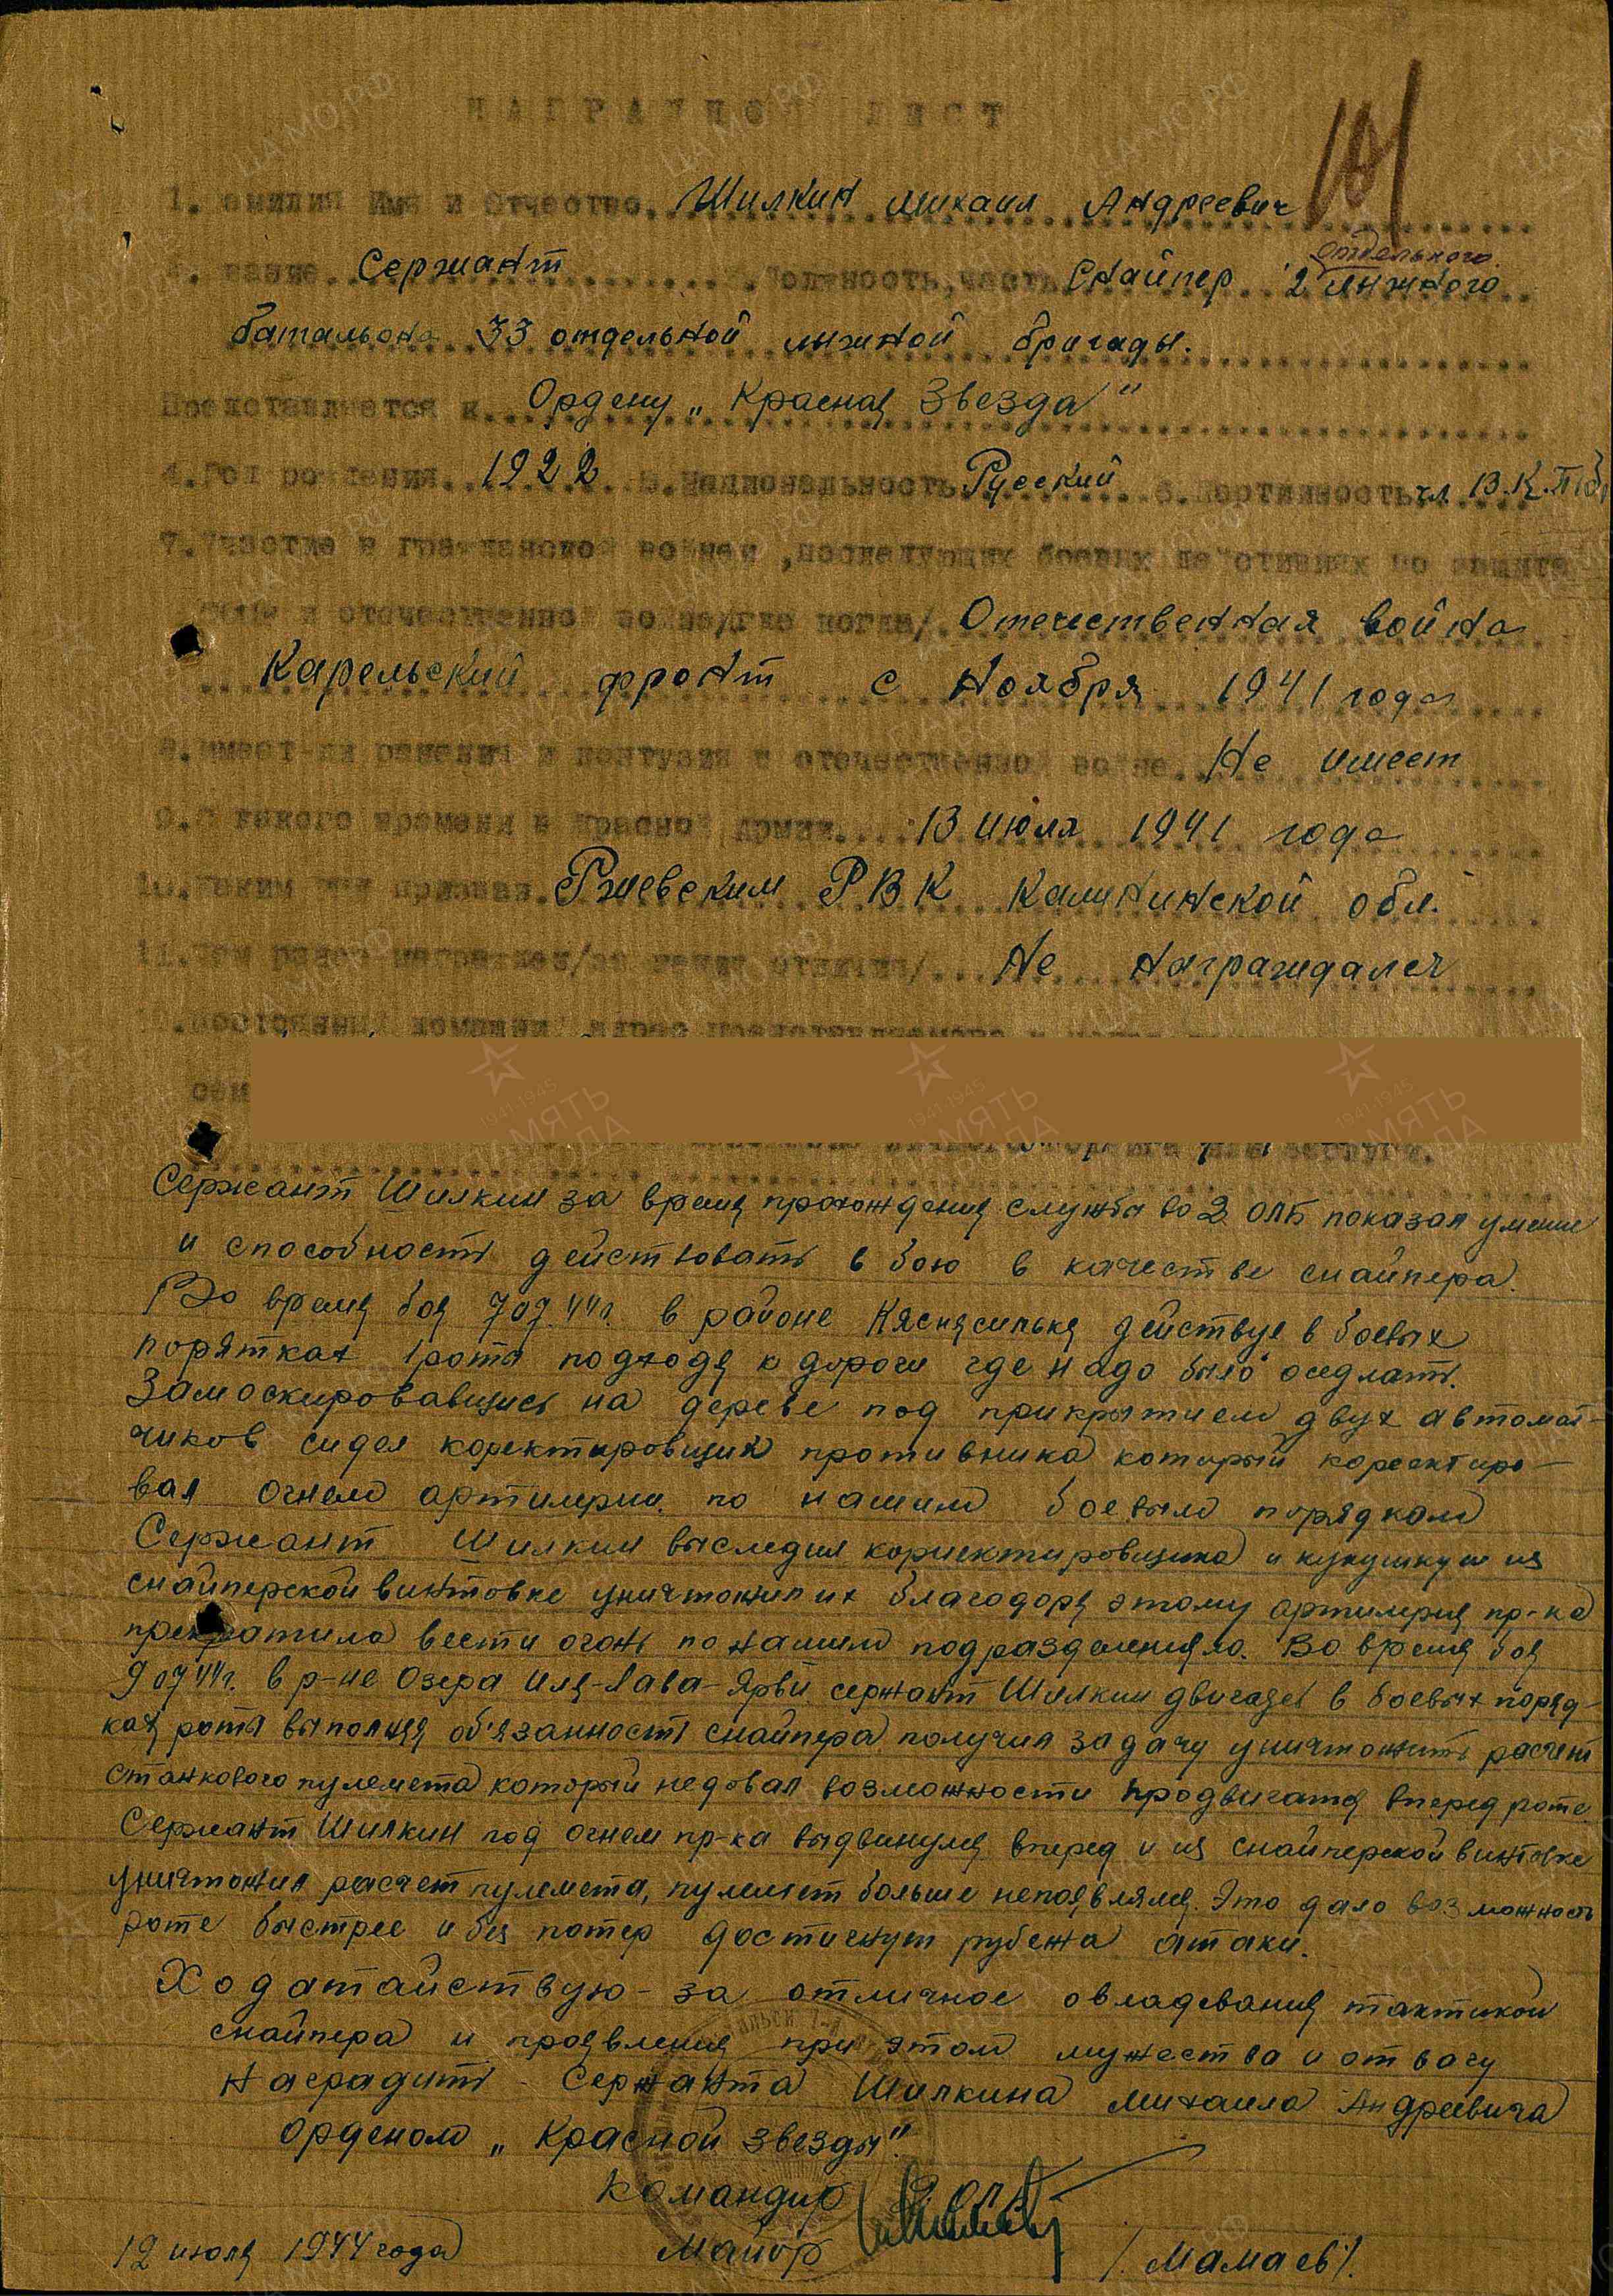 НАГРАДНОЙ ЛИСТ
181
1. Фамилия Имя и Отчество. Шилкин Михаил Андреевич
2. Звание. Сержант 3. Должность, часть Снайпер 2 отдельного лыжного
батальона 33 отдельной лыжной бригады.
Представляется к. Ордену „Красная Звезда"
4. Год рождения. 1922 5. Национальность Русский 6. Партийность чл. В.К.П(б)
7. Участие в гражданской войне, последующих боевых действиях по защите
СССР и отечественной войне/где когда/. Отечественная война
Карельский фронт с Ноября 1941 года
8. Имеет-ли ранения и контузии в отечественной войне. Не имеет
9. С какого времени в Красной Армии. 13 июля 1941 года
10. Каким РВК призван. Ржевским РВК Калининской обл.
11. Чем ранее награжден/за какие отличия/. Не награждался
12. Постоянный домашний адрес представляемого к
сем
личного боевого подвига или заслуги.
Сержант Шилкин за время прохождения службы во 2 ОЛБ показал умение
и способность действовать в бою в качестве снайпера.
Во время боя 7.07.44г. в районе Кяснясилькя действуя в боевых
порятках 1 роты подходя к дороги где надо было оседлать.
Замоскировавшись на дереве под прикрытием двух автомат-
чиков сидел коректировщик противника который кореектиро-
вал огнем артилерии по нашим боевым порядкам
Сержант Шилкин выследил корректировщика и кукушку и из
снайперской винтовке уничтожил их благодоря этому артилерия пр-ка
прекратила вести огонь по нашим подразделениям. Во время боя
9.07.44г. в р-не Озера Иля-Лава-Ярви сержант Шилкин двигаясь в боевых поряд-
ках роты выполняя об'язанность снайпера получил задачу уничтожить расчет
станкового пулемета который недовал возможности продвигатся вперед роте.
Сержант Шилкин под огнем пр-ка выдвинулся вперед и из снайперской винтовке
уничтожил расчет пулемета, пулемет больше непоявлялся. Это дало возможность
роте быстрее и без потер достигнут рубежа атаки.
Ходатайствую - за отличное овладевания тактикой
снайпера и проявления при этом мужества и отвагу
наградить Сержанта Шилкина Михаила Андреевича
орденом „Красной звезды".
Командир 2 ОЛБ
12 июля 1944 года Майор /Мамаев/.